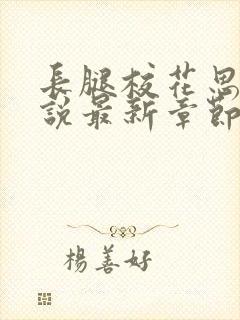 長腿校花思
說最新章節
楊善好